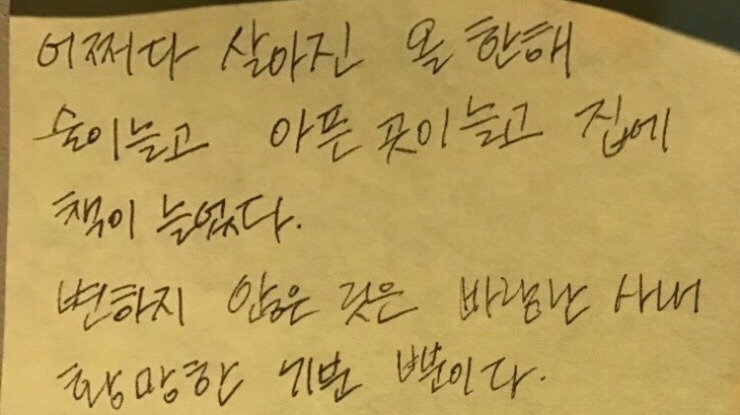 어쩌다 살아진 올 한해
술이늘고 아픈 곳이늘고 집에
책이 늘었다.
변하지 않은 것은 바람난 사내
황망한 기분 뿐이다.